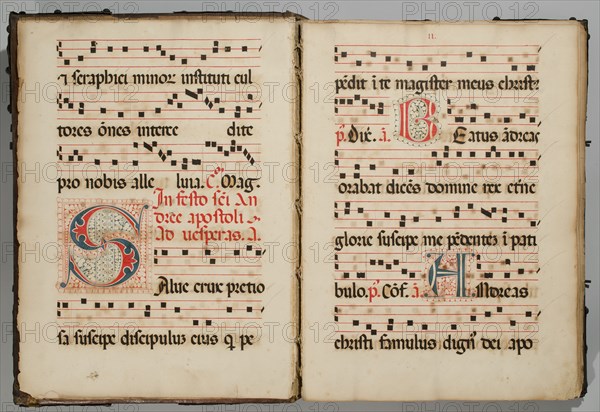 ⁊ seraphici minor instituti cul
tores oñes interce dite
pro nobis alle luia. Mag.
In festo sci An
dree apostoli
Ad uesperas. a.
Salue crux pretio
sa suscipe discipulũ eius q pe
II.
pẽdit ĩ te magister meus christꝰ
p. Dix̃. a. Beatus ãdreas
orabat dicẽs domine rex etñe
glorie suscipe me pẽdentẽ ĩ pati
bulo. p. Cõf. a. Andreas
christi famulus dign dei apo
PHOTO12